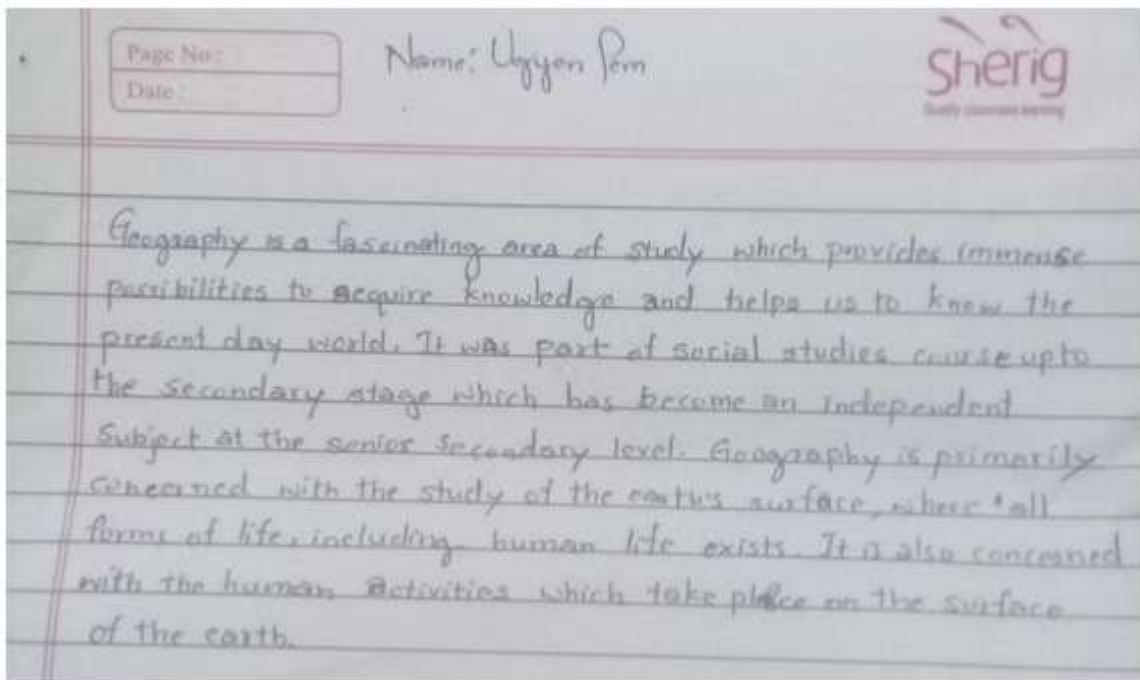 Page No :
Date :
Name: Ugyen Pem
Sherig
Geography is a fascinating area of study which provides immense
possibilities to acquire knowledge and helps us to know the
present day world. It was part of social studies course upto
the secondary stage which has become an independent
Subject at the senior secondary level. Geography is primarily
concerned with the study of the earth's surface, where all
forms of life, including human life exists. It is also concerned
with the human activities which take place on the surface
of the earth.